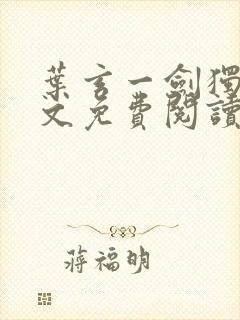 葉玄一劍獨
文免費閱讀
蔣福明